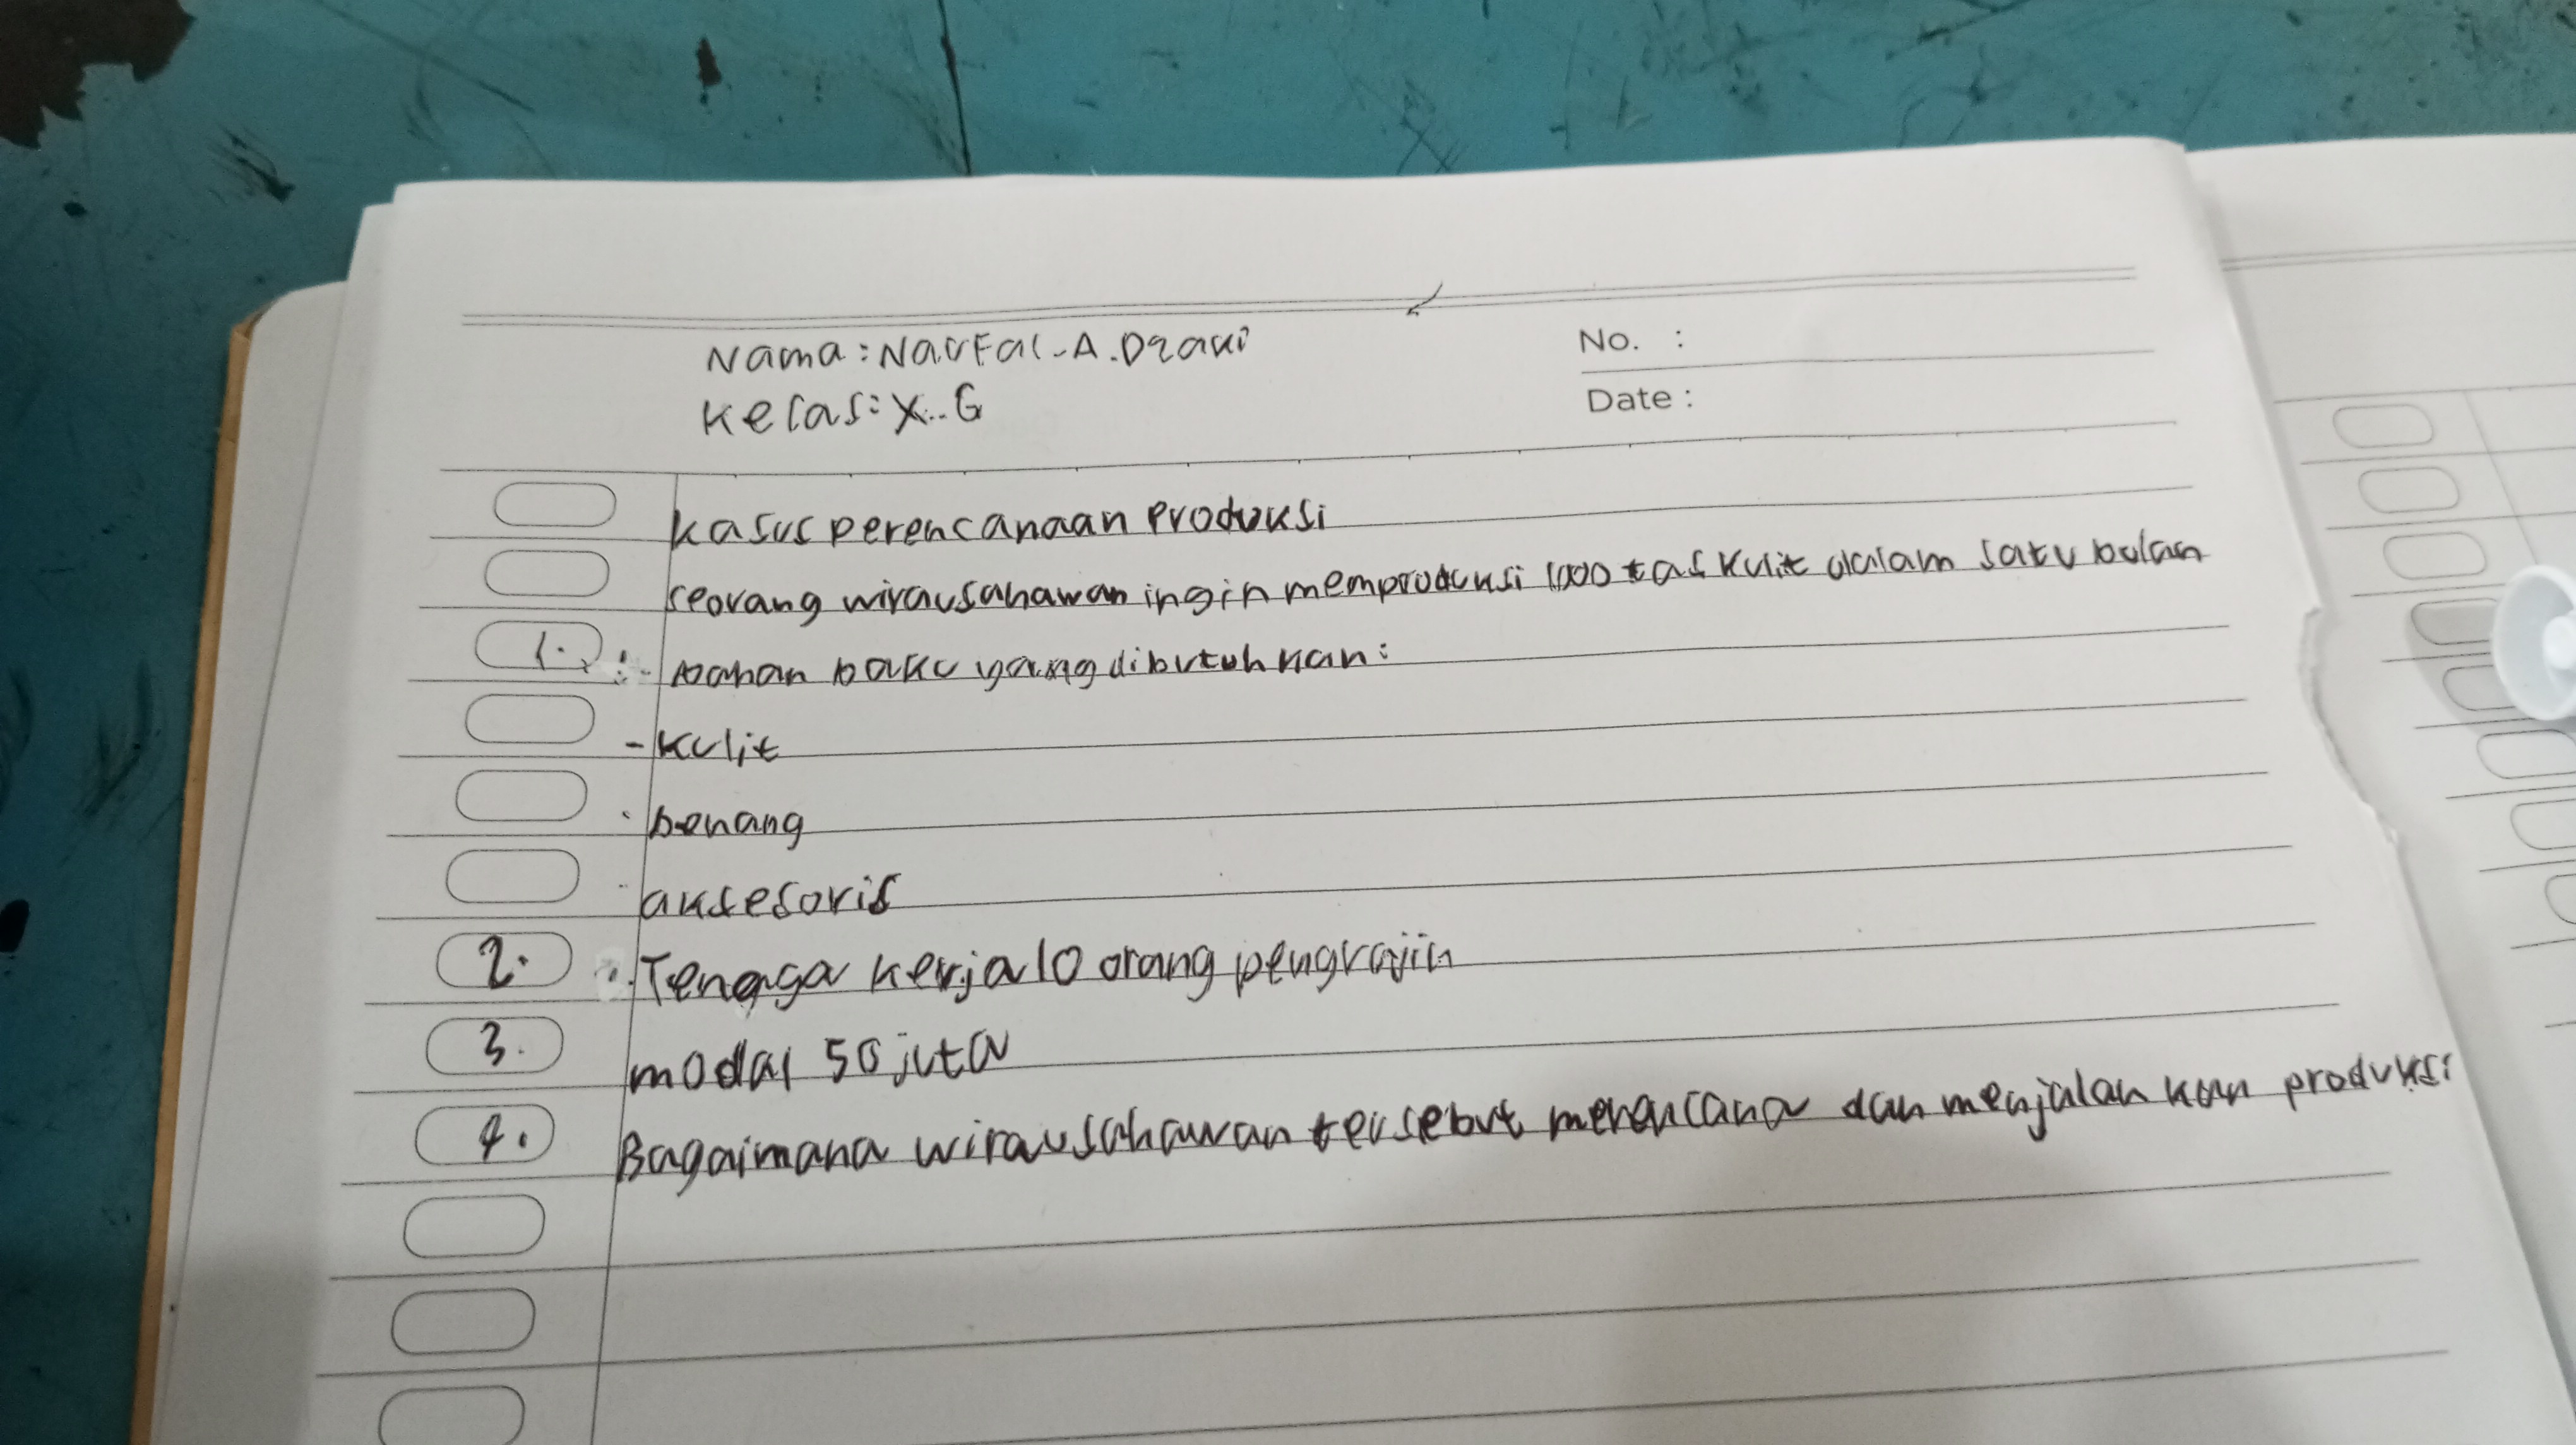 Nama : Naufal - A. Dzaki
No. :
Kelas : X.. G
Date :
kasus perencanaan produksi
seorang wirausahawan ingin memproduksi 1000 tas kulit dalam satu bulan
1. bahan baku yang dibutuhkan :
- kulit
. benang
. aksesoris
2. Tenaga kerja 10 orang pengrajin
3. modal 50 juta
4. Bagaimana wirausahawan tersebut merencana dan menjalankan produksi